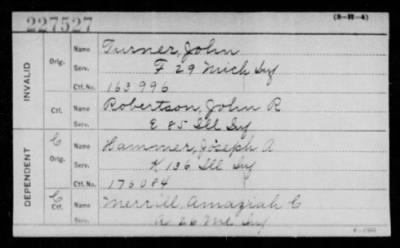 227527
(3-H-4)
INVALID
Orig.
Name Turner, John
Serv. F 29 Mich Inf
Ctf. No. 163996
Ctf.
Name Robertson, John R
Serv. E 85 Ill Inf
DEPENDENT
C
Orig.
Name Hammer, Joseph A
Serv. K 136 Ill Inf
Ctf. No. 175084
C
Ctf.
Name Merrill, Amaziah C
Serv. A 26 Me Inf